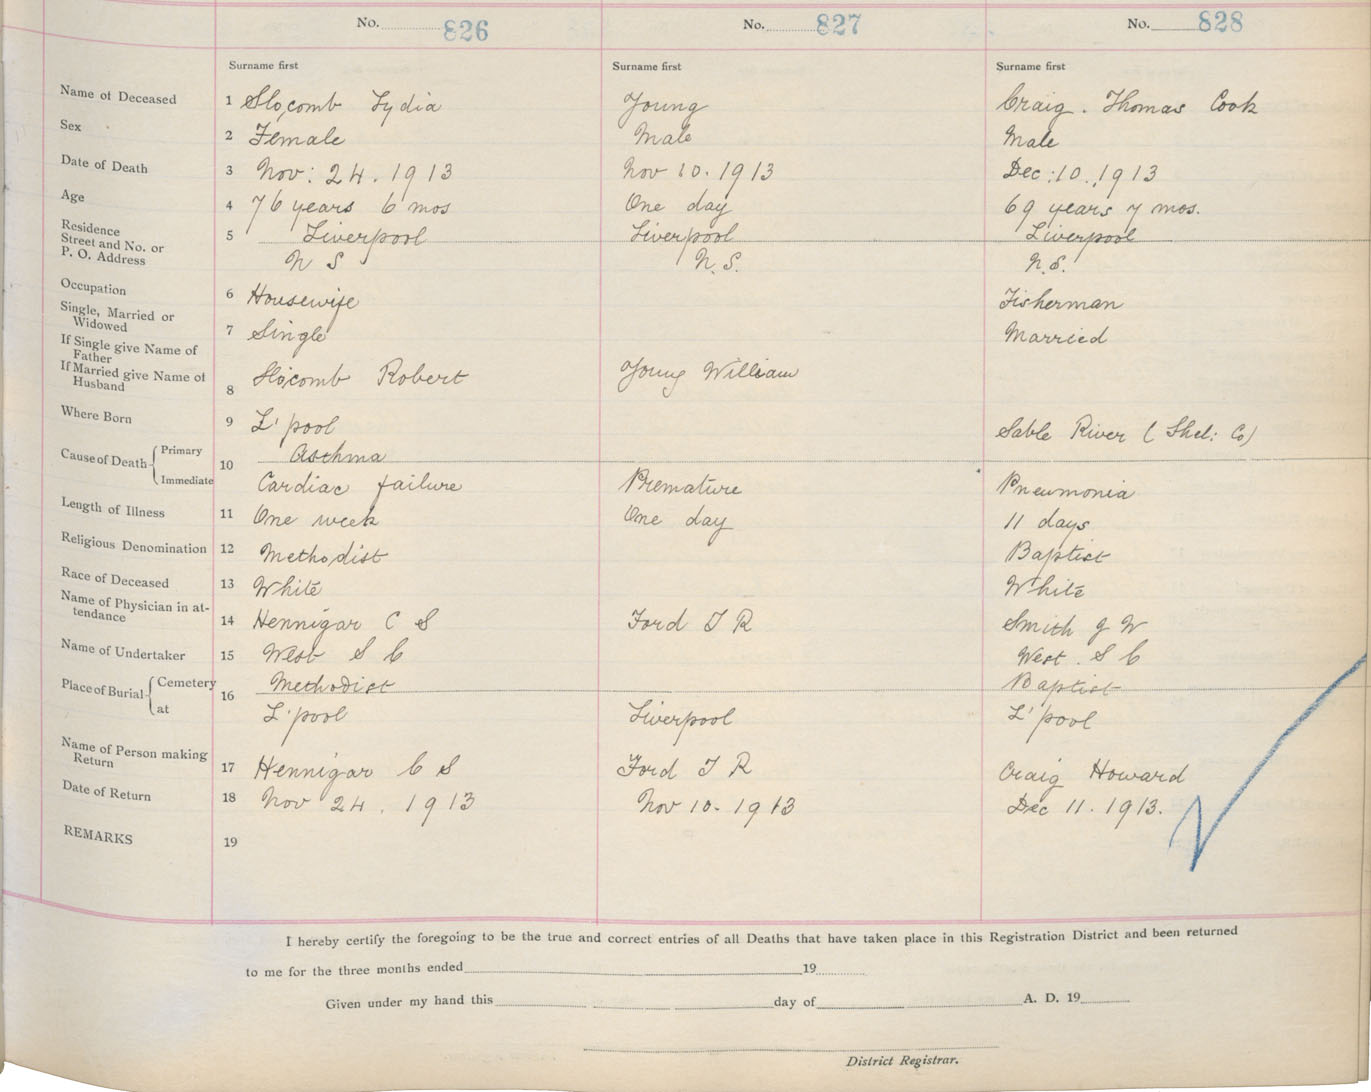 No. 826 No. 827 No. 828
Surname first Surname first Surname first
Name of Deceased 1 Slocomb Lydia Young Craig. Thomas Cook
Sex 2 Female Male Male
Date of Death 3 Nov: 24. 1913 Nov 10. 1913 Dec: 10. 1913
Age 4 76 years 6 mos One day 69 years 7 mos.
Residence
Street and No. or 5 Liverpool Liverpool Liverpool
P. O. Address N S N. S. N. S.
Occupation 6 Housewife Fisherman
Single, Married or
Widowed 7 Single Married
If Single give Name of
Father
If Married give Name of
Husband 8 Slocomb Robert Young William
Where Born 9 L'pool Sable River (Shel: Co)
Cause of Death Primary 10 Asthma
Immediate Cardiac failure Premature Pneumonia
Length of Illness 11 One week One day 11 days
Religious Denomination 12 Methodist Baptist
Race of Deceased 13 White White
Name of Physician in at-
tendance 14 Hennigar C S Ford T R Smith J W
Name of Undertaker 15 West S C West. S C
Place of Burial Cemetery 16 Methodist Baptist
at L'pool Liverpool L'pool
Name of Person making
Return 17 Hennigar C S Ford T R Craig Howard
Date of Return 18 Nov 24. 1913 Nov 10. 1913 Dec 11. 1913.
REMARKS 19
I hereby certify the foregoing to be the true and correct entries of all Deaths that have taken place in this Registration District and been returned
to me for the three months ended 19
Given under my hand this day of A. D. 19
District Registrar.